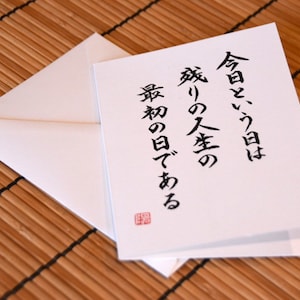 今日という日は
残りの人生の
最初の日である